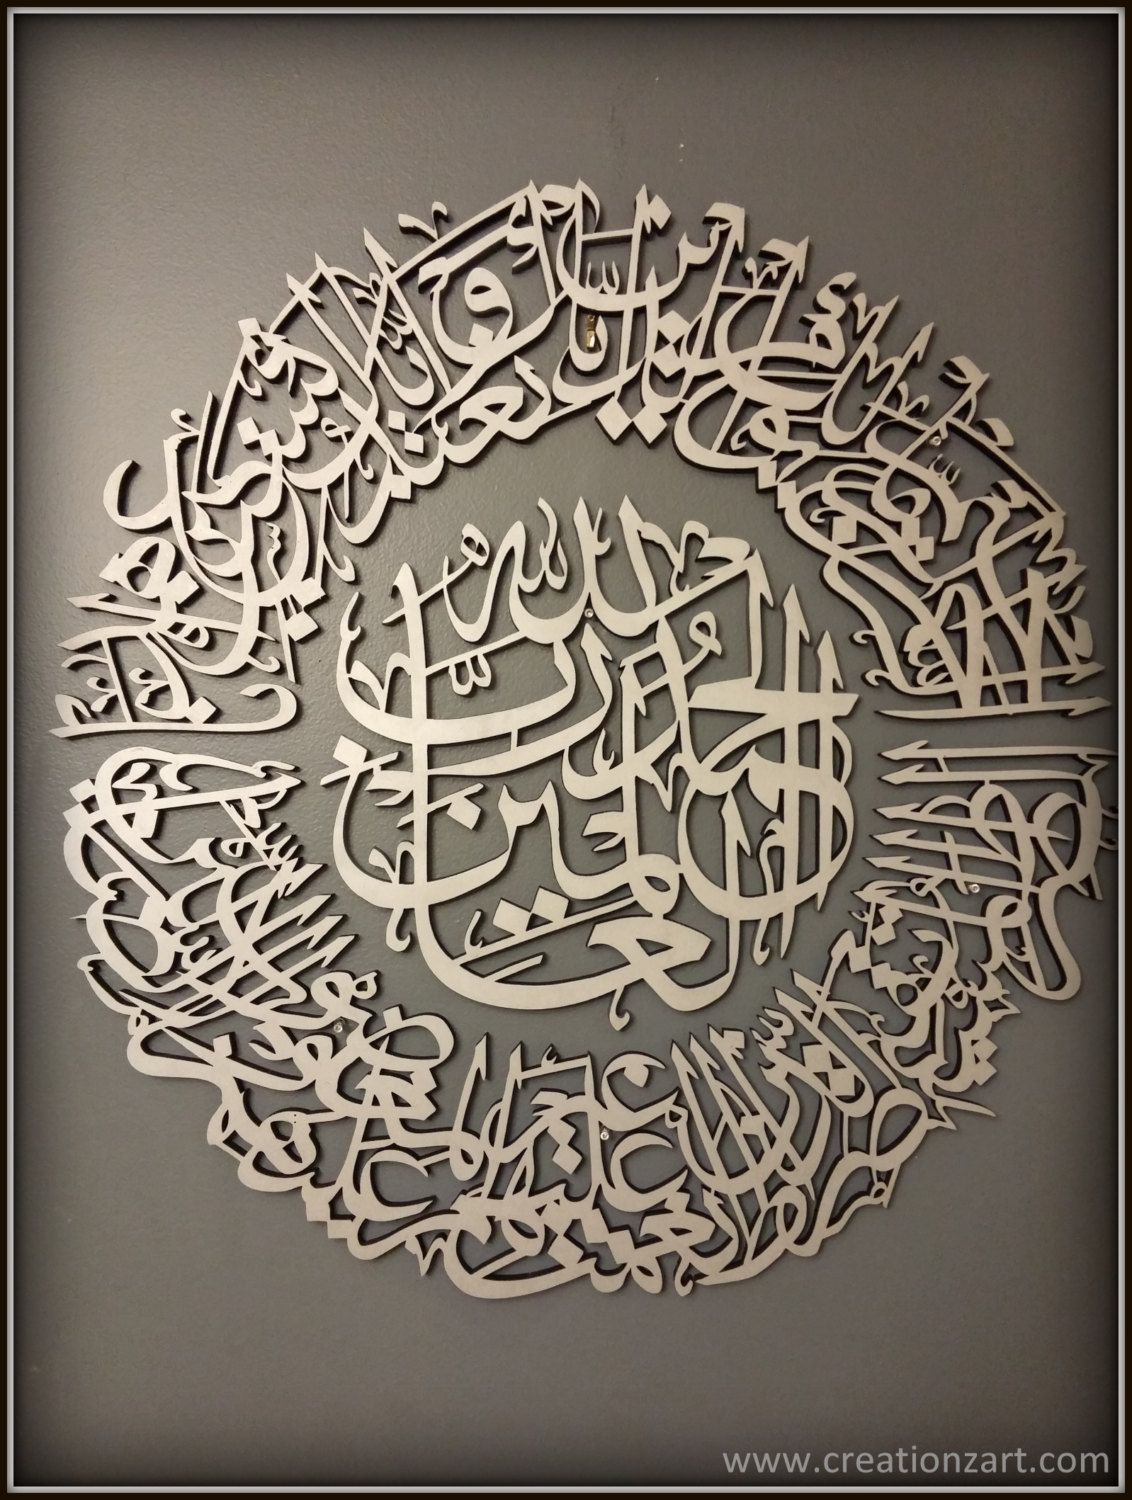 الحمد لله رب العلمين
الرحمن الرحيم ملك يوم الدين إياك نعبد وإياك نستعين اهدنا
الصراط المستقيم صراط الذين أنعمت عليهم غير المغضوب عليهم ولا الضالين
www.creationzart.com